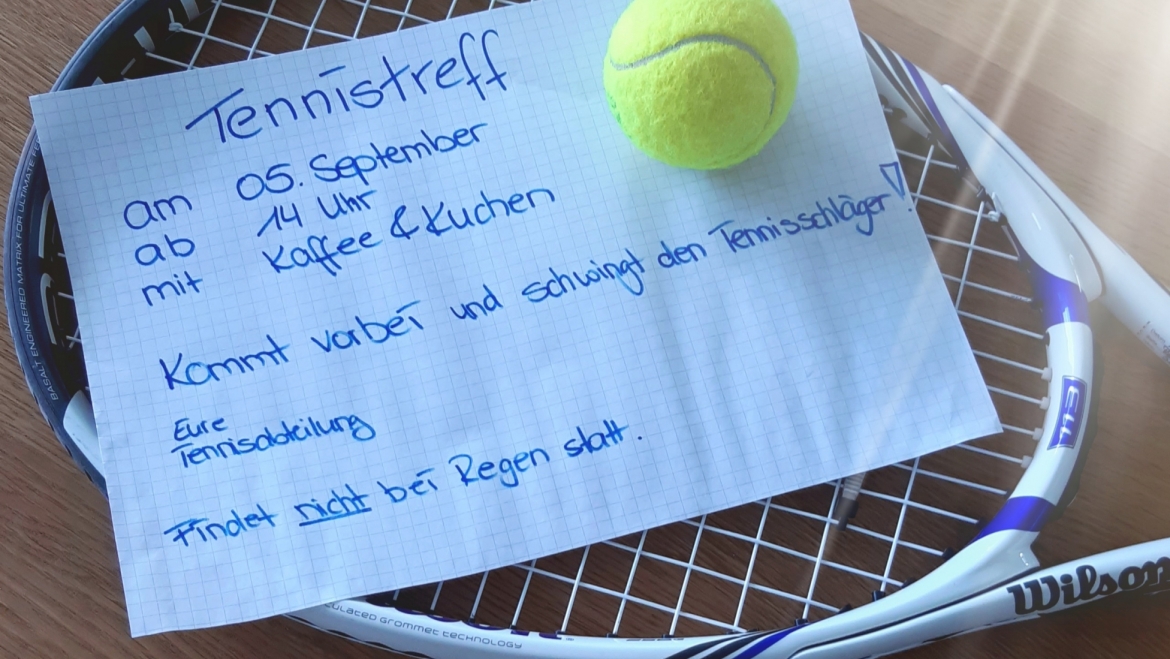 Tennistreff
am 05. September
ab 14 Uhr
mit Kaffee & Kuchen
Kommt vorbei und schwingt den Tennisschläger!
Eure
Tennisabteilung
Findet nicht bei Regen statt.
BASALT ENGINEERED MATRIX FOR ULTIMATE
GROMMET TECHNOLOGY
Wilson